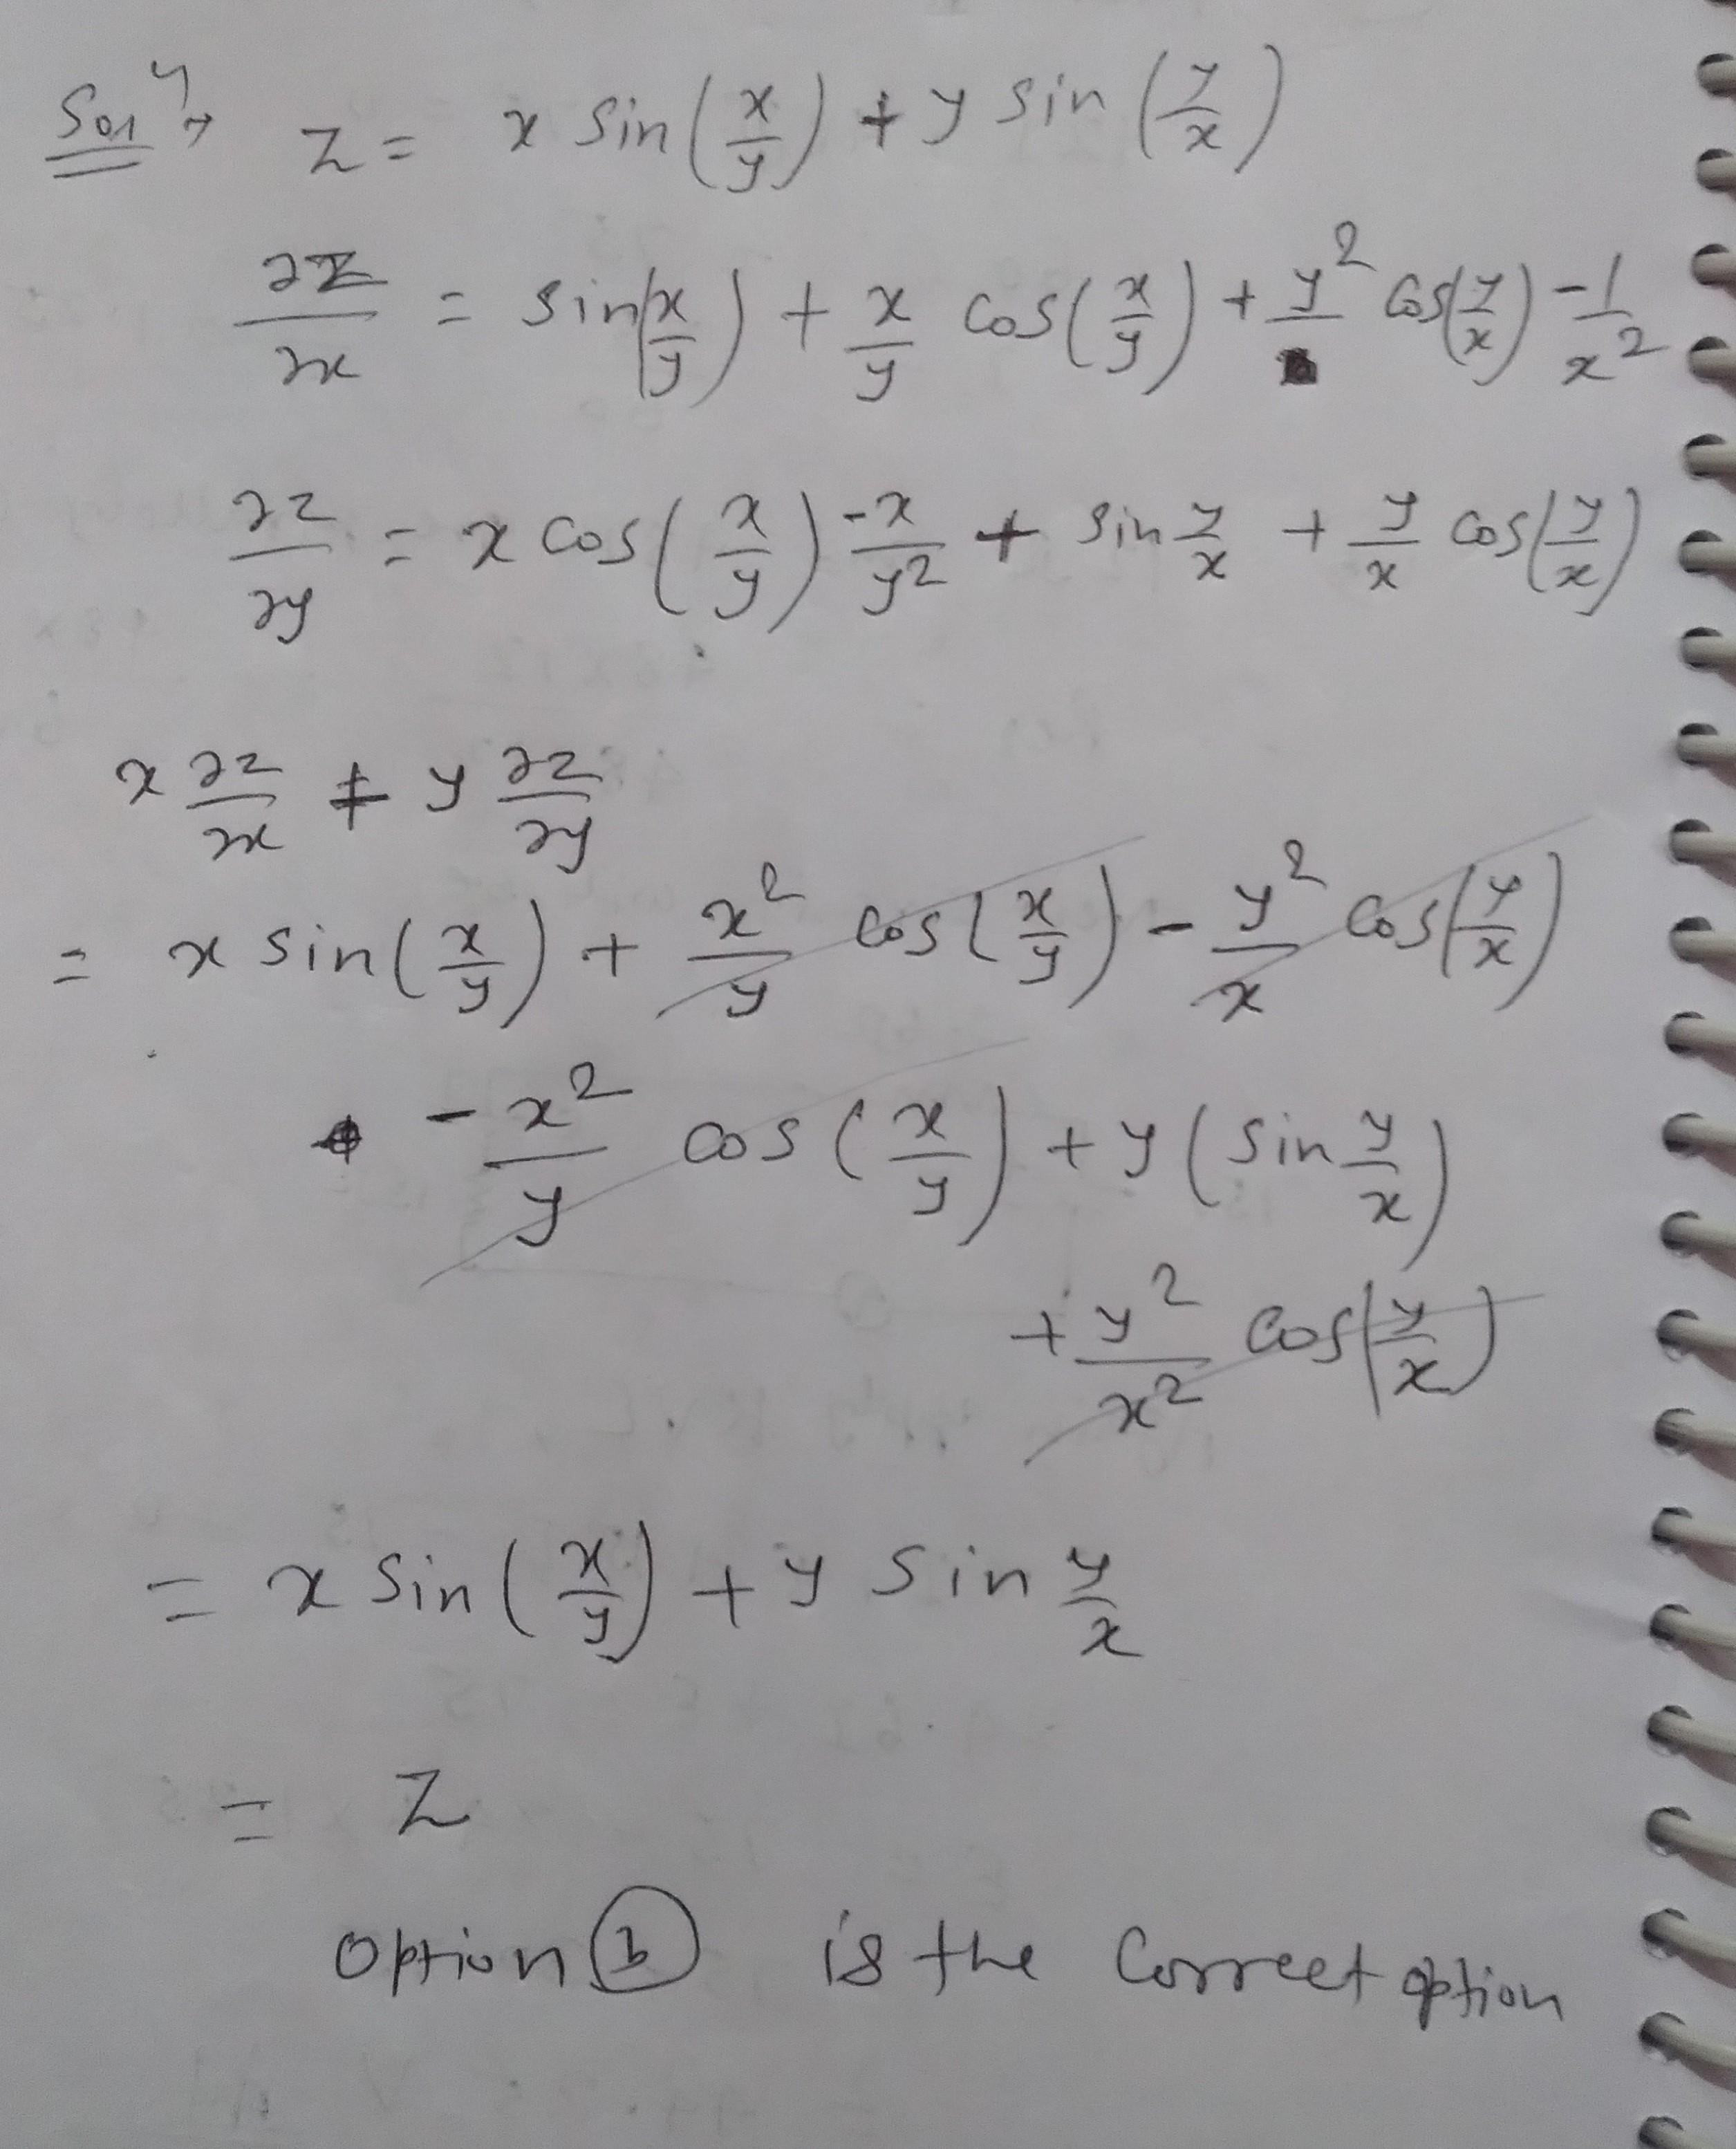 Solⁿ→ z = x sin(x/y) + y sin(y/x)
∂z/∂x = sin(x/y) + x/y cos(x/y) + y² cos(y/x) -1/x²
∂z/∂y = x cos(x/y) -x/y² + sin y/x + y/x cos(y/x)
x ∂z/∂x + y ∂z/∂y
= x sin(x/y) + x²/y cos(x/y) - y²/x cos(y/x)
- x²/y cos(x/y) + y(sin y/x)
+ y²/x² cos(y/x)
= x sin(x/y) + y sin y/x
= z
Option (b) is the correct option